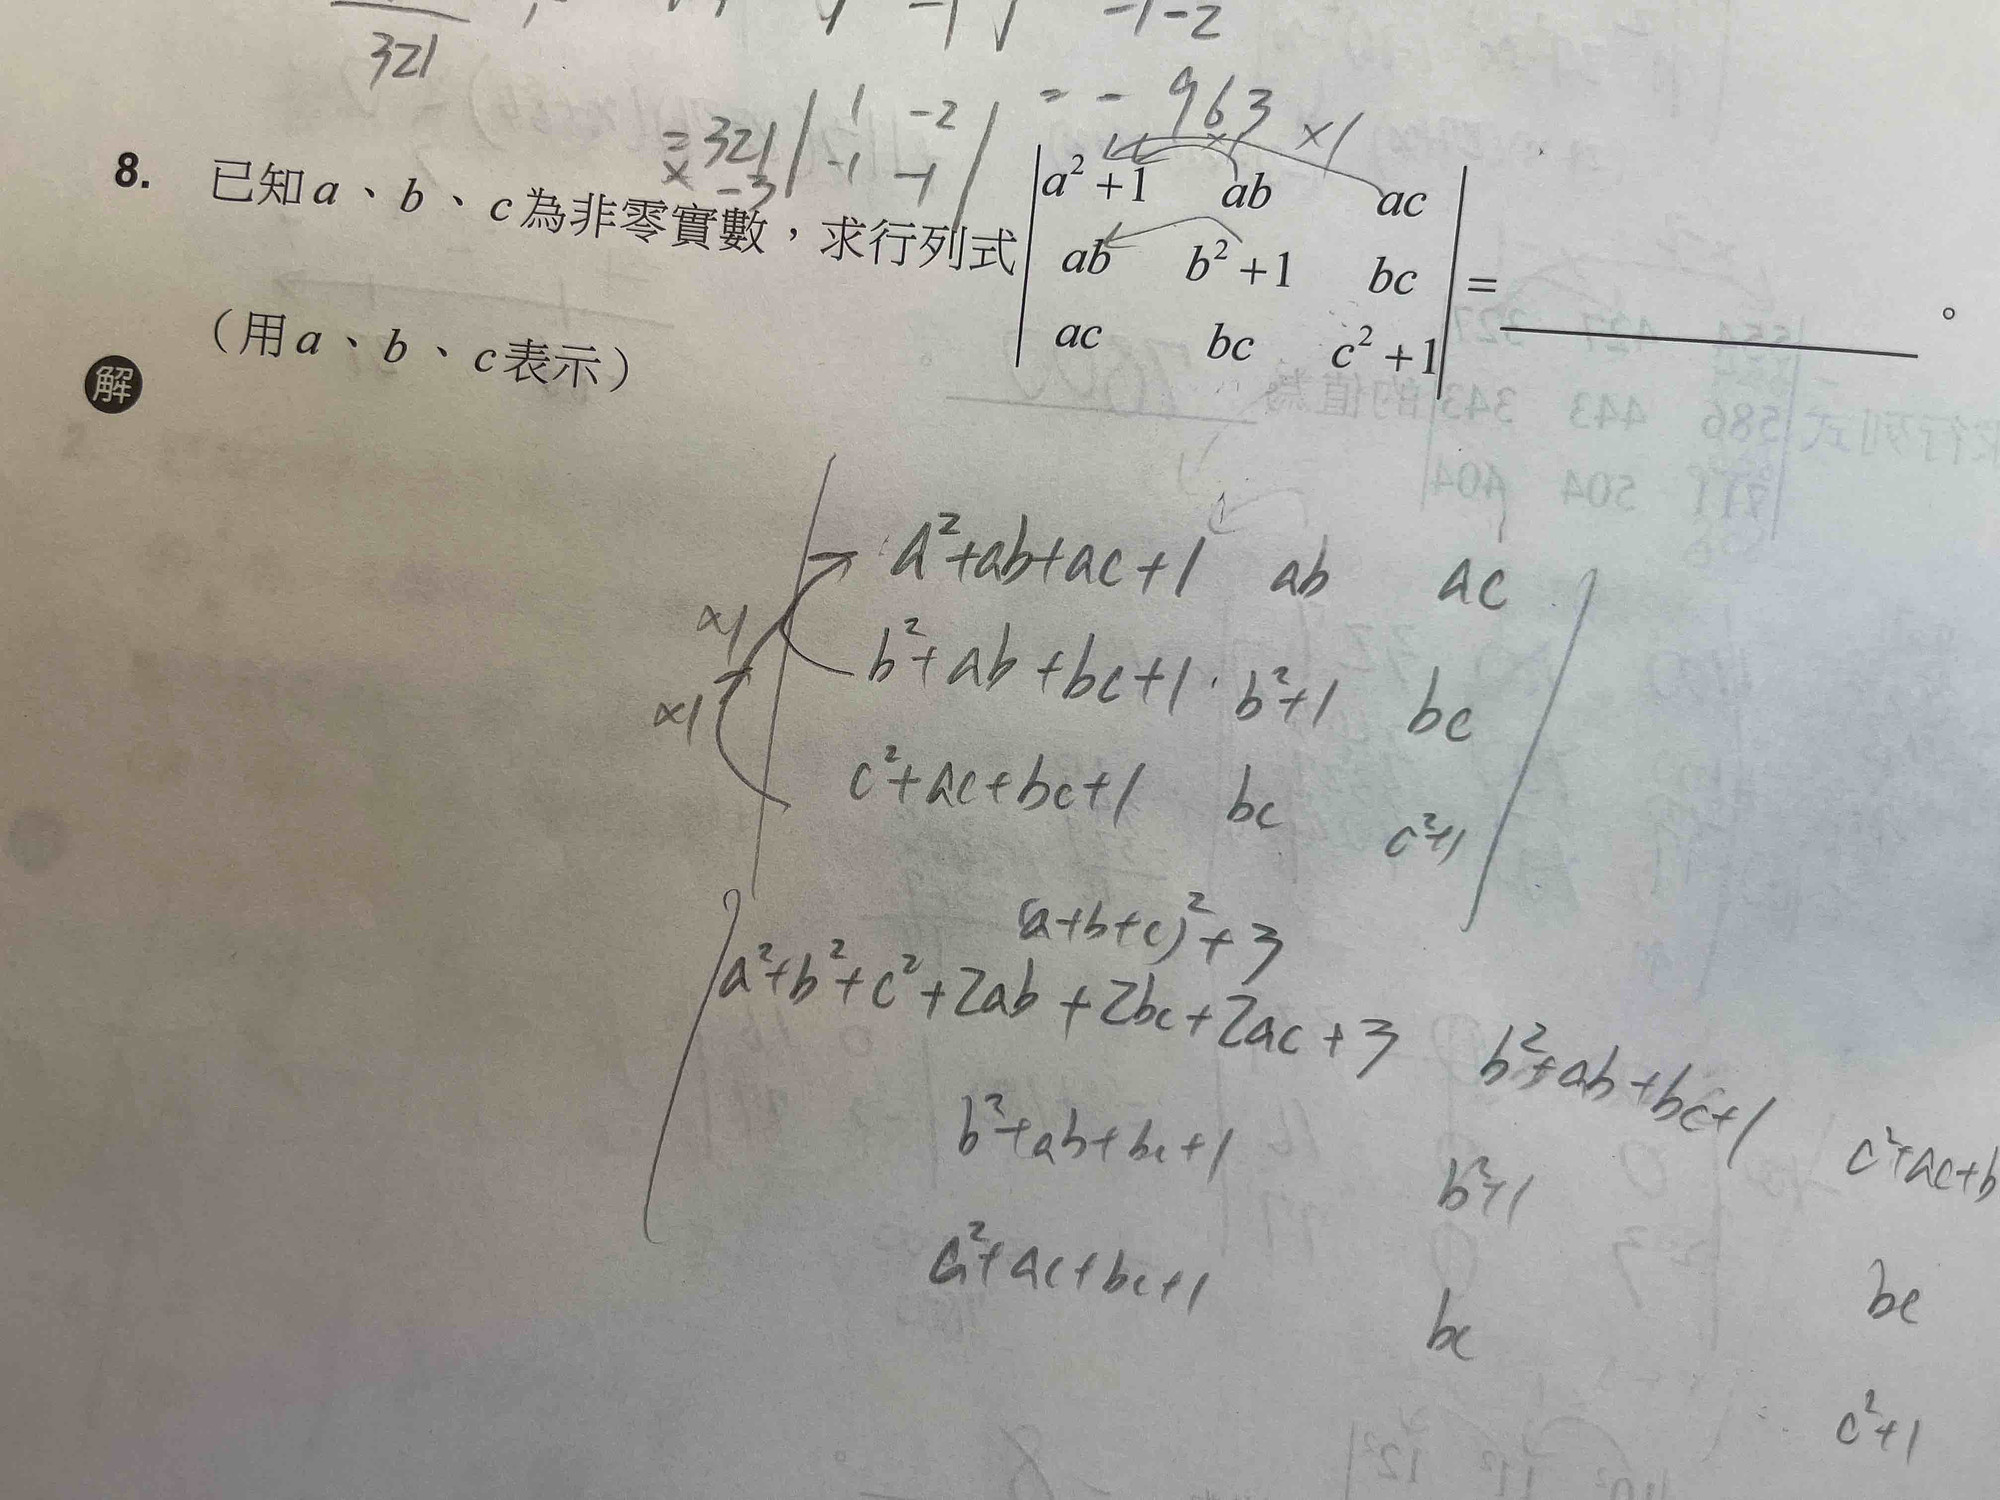 321
-1-2
= 321 | 1 -2 | = - 963
x -3 | -1 -1 |
x1 x1
8. 已知a、b、c為非零實數，求行列式 | a²+1 ab ac |
| ab b²+1 bc | = ________ 。
| ac bc c²+1 |
（用a、b、c表示）
解
a²+ab+ac+1 ab ac
x1
b²+ab+bc+1 b²+1 bc
x1
c²+ac+bc+1 bc c²+1
(a+b+c)²+3
a²+b²+c²+2ab+2bc+2ac+3 b²+ab+bc+1 c²+ac+b
b²+ab+bc+1 b²+1 bc
c²+ac+bc+1 bc c²+1